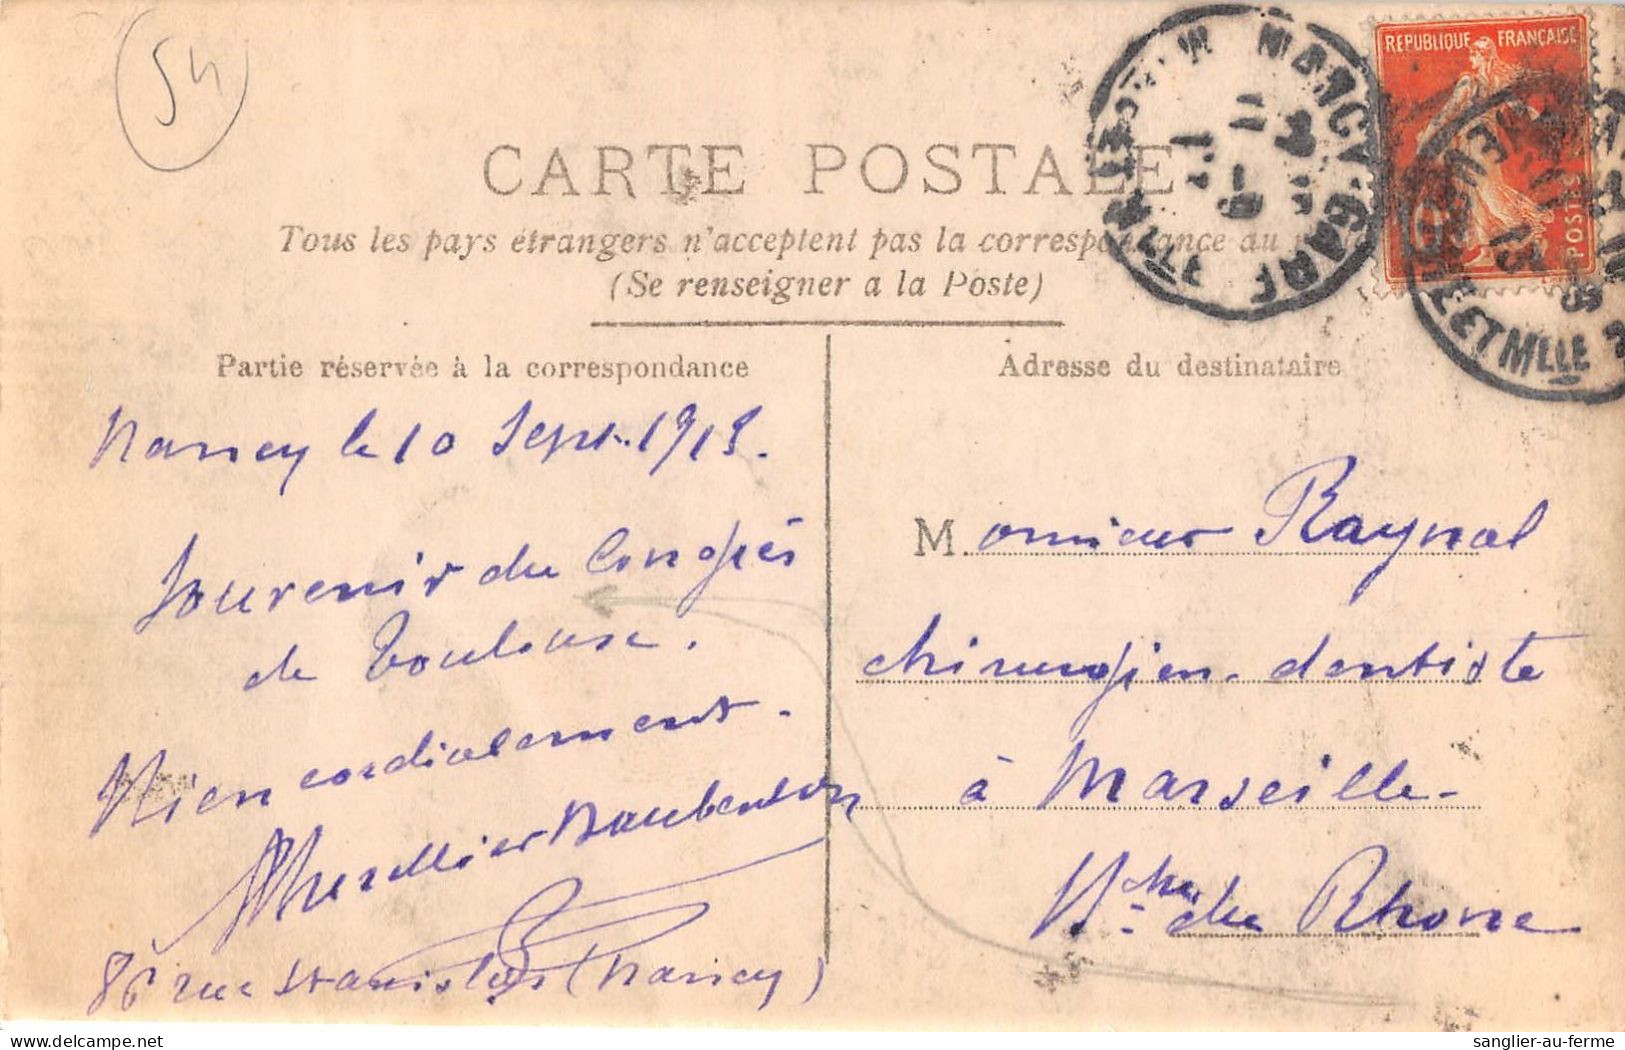 54
CARTE POSTALE
Tous les pays étrangers n'acceptent pas la correspondance au
(Se renseigner a la Poste)
REPUBLIQUE FRANÇAISE
POSTES
NANCY GARE
MLLE ET MLLE
ET MLLE
Partie réservée à la correspondance
Nancy le 10 Sept. 1913.
Souvenir du Congrès
de Toulouse.
Bien cordialement.
86 rue Stanislas (Nancy)
Adresse du destinataire
Monsieur Raynal
chirurgien-dentiste
à Marseille-
Bches du Rhone
sanglier-au-ferme